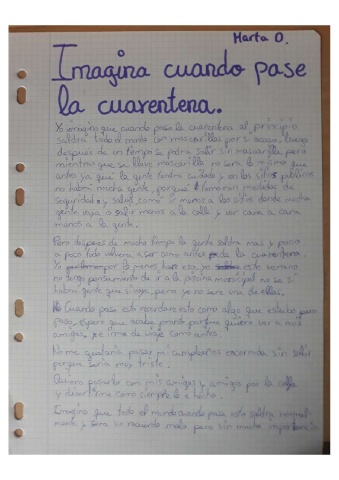 Marta D.
Imagina cuando pase
la cuarentena.
Yo imagino que cuando pase la cuarentena al principio
saldrá todo el mundo con mascarillas por si acaso, luego
después de un tiempo se podrá salir sin mascarilla, pero
mientras que se lleve mascarilla no será lo mismo que
antes ya que la gente tendrá cuidado y en los sitios públicos
no habrá mucha gente, porque tomaran medidas de
seguridad y salud, como ir menos a los sitios donde mucha
gente vaya o salir menos a la calle y ver cara a cara
menos a la gente.
Pero después de mucho tiempo la gente saldrá mas y poco
a poco todo volverá a ser como antes de la cuarentena.
Yo por lo menos haré eso, yo este verano
no tengo pensamiento de ir a la piscina municipal no se si
habrá gente que si vaya, pero yo no seré una de ellas.
Cuando pase esto recordare esto como algo que estuvo pero
paso, espero que acabe pronto porque quiero ver a mis
amigas, e irme de viaje como antes.
No me gustaría pasar mi cumpleaños encerrada sin salir
porque sería muy triste.
Quiero pasarlo con mis amigos y amigas por la calle
y divertirme como siempre lo e hecho.
Imagino que todo el mundo cuando pase esto saldrá normal-
mente y será un recuerdo malo pero sin mucha importancia.